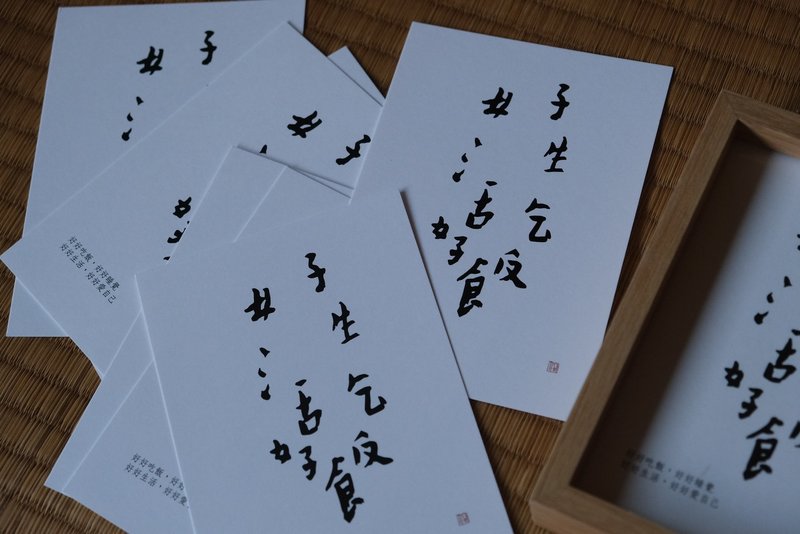 女 子
氵
女 子
女 子
氵 生
活 乞
好 飯
好好吃飯，好好睡覺
好好生活，好好愛自己
女 子
氵 生
活 乞
好 飯
好好吃飯，好
好好生活，好好
氵
舌
好 食
好好吃飯，好好睡覺
好好生活，好好愛自己